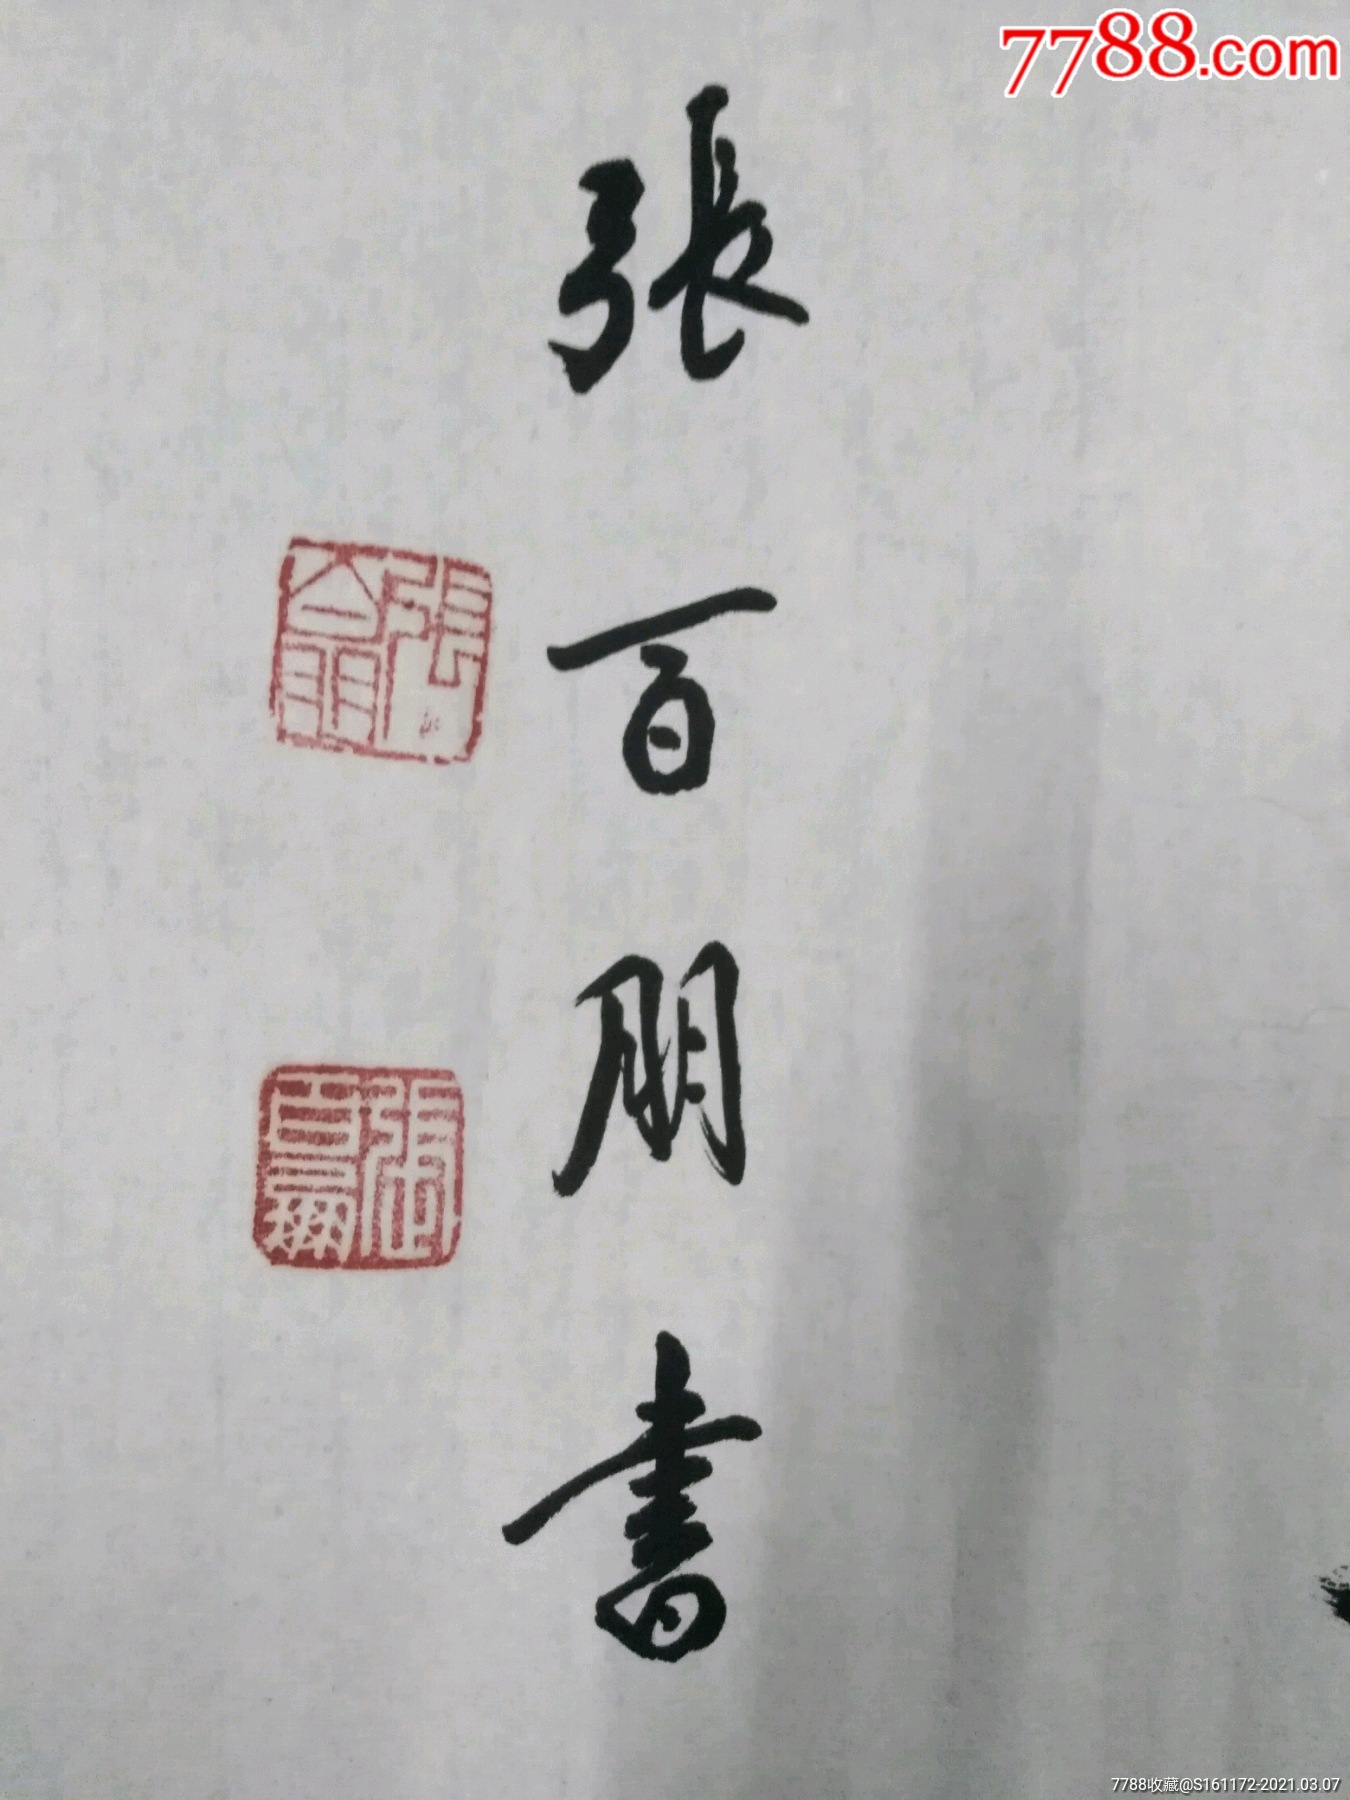 7788.com
張百朋書
7788收藏@S161172-2021.03.07